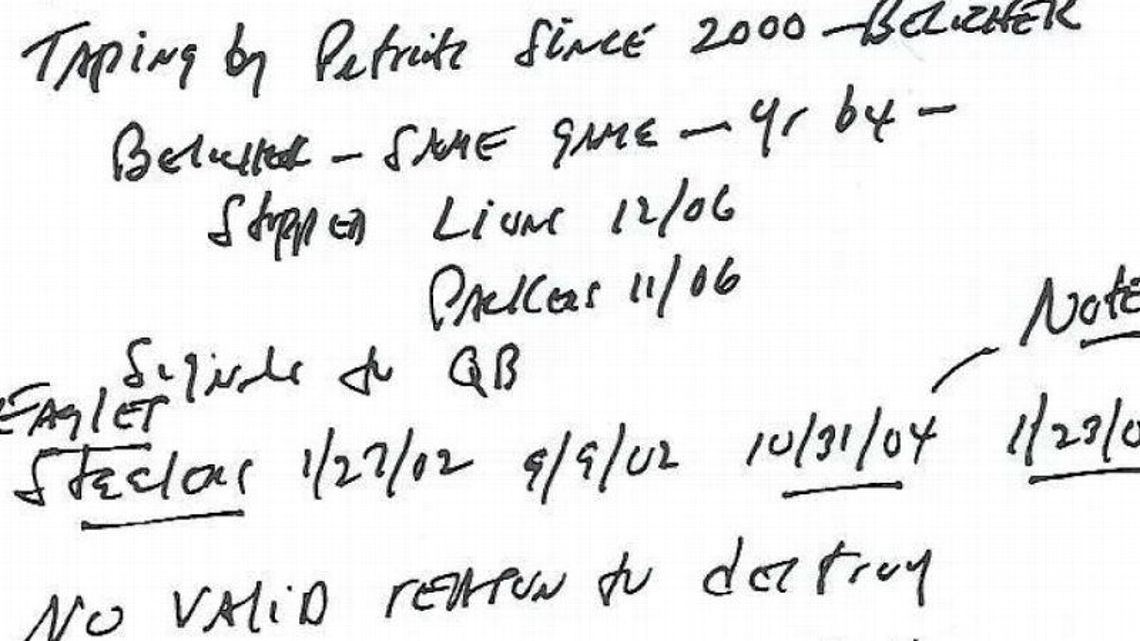 Taping by Patriots Since 2000 – BELICHEK
Belichek – SAME gAME – yr by –
Stopped Lions 12/06
Packers 11/06
Note
Signals to QB
EAglEs
Steelers 1/27/02 9/9/02 10/31/04 1/23/0
No VALiD reason to destroy